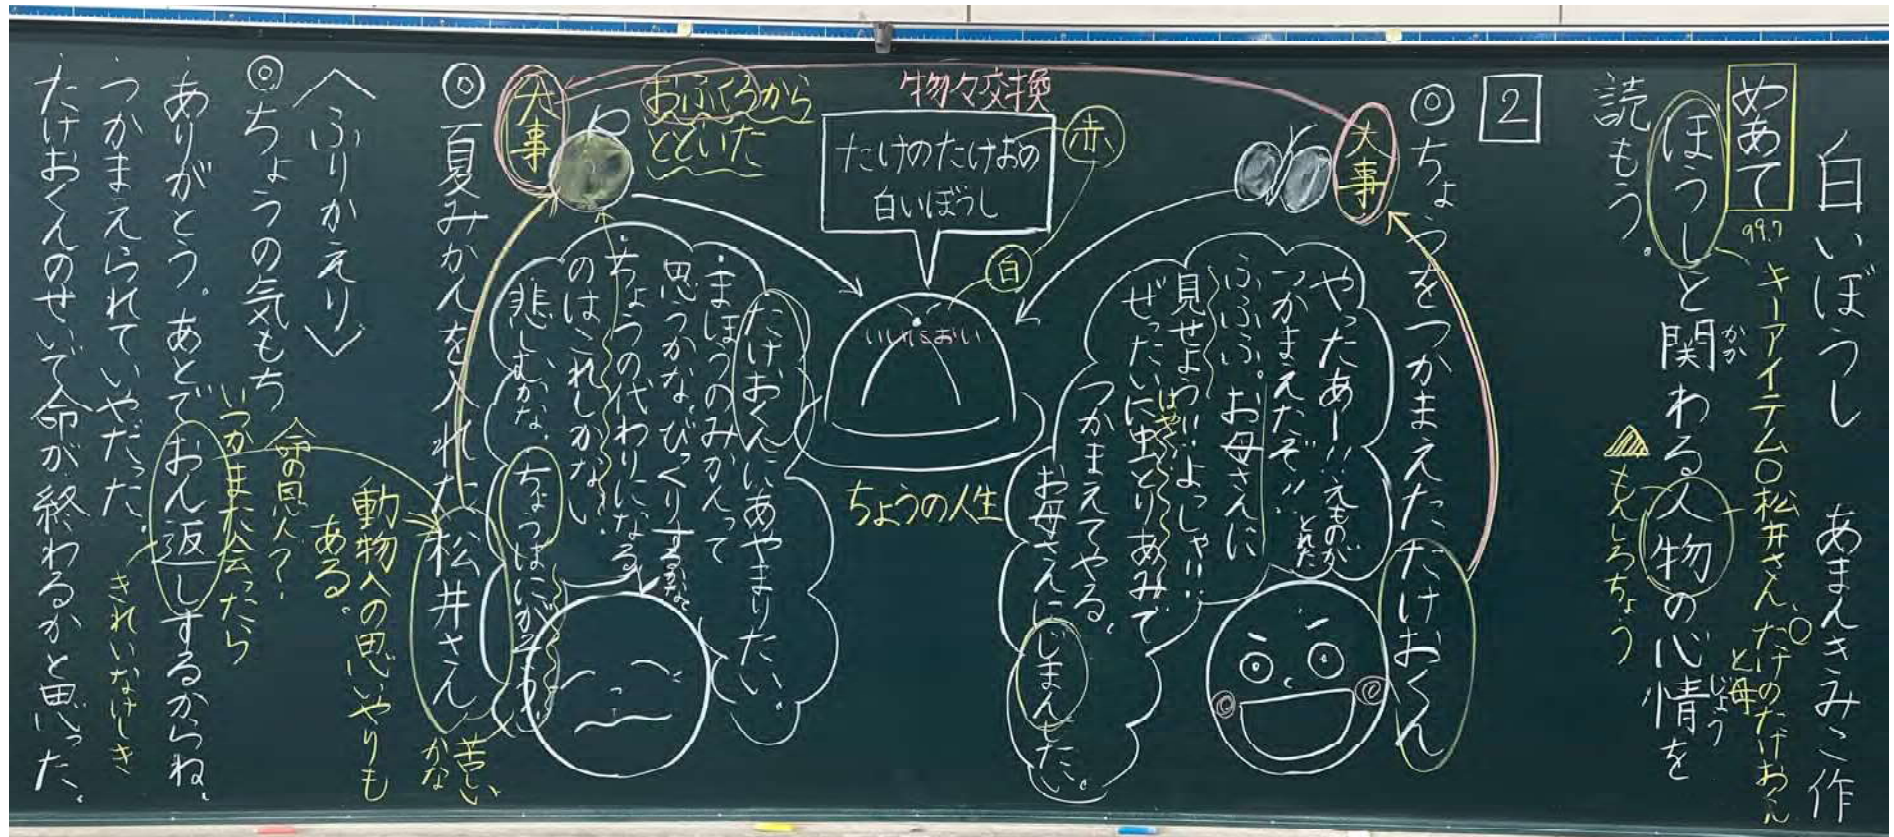 白いぼうし　あまんきみこ作
めあて
99.7
ぼうしと関わる人物の心情を
かか
じょう
読もう。
キーアイテム○松井さん、たけのたけおくん
と母
もんしろちょう
2
◎ちょうをつかまえたたけおくん
大事
やったあー!!えものが
とれた
つかまえたぞ!!
ふふふ。お母さんに
見せよう!!よっしゃ!!
はやく
ぜったいに虫とりあみで
つかまえてやる。
お母さんにじまんしたい。
物々交換
赤
たけのたけおの
白いぼうし
白
いいにおい
ちょうの人生
おふくろから
とどいた
大事
たけおくんにあやまりたい。
・まほうのみかんって
思うかな。びっくりするかな。
・ちょうの代わりになる
のはこれしかない
悲しむかな。
ちょうはにがそう。
苦しい
かな
◎夏みかんを入れた松井さん
動物への思いやりも
ある。
〈ふりかえり〉
命の恩人?
◎ちょうの気もち
いつかまた会ったら
・ありがとう。あとでおん返しするからね。
きれいなけしき
・つかまえられていやだった。
たけおくんのせいで命が終わるかと思った。